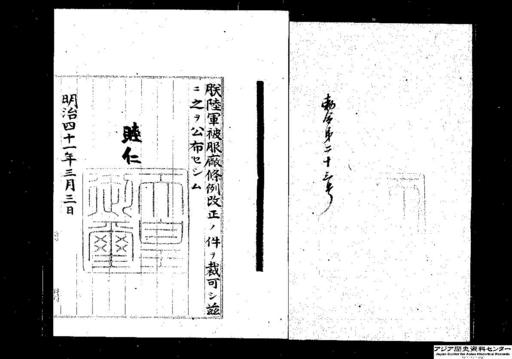 勅令第二十三号
朕陸軍被服廠條例改正ノ件ヲ裁可シ茲
ニ之ヲ公布セシム
睦仁
天皇御璽
明治四十一年三月三日
アジア歴史資料センター
Japan Center for Asian Historical Records